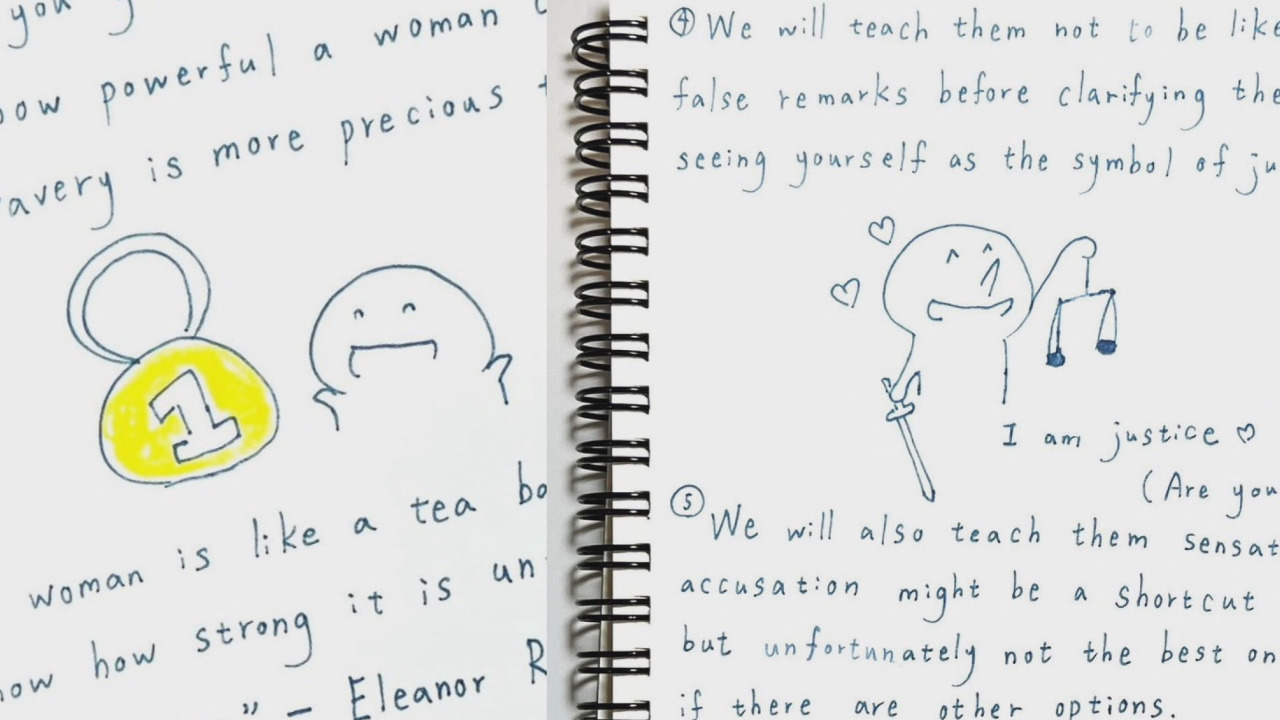 you
how powerful a woman
avery is more precious
1
woman is like a tea
how how strong it is un
" - Eleanor R
④ We will teach them not to be like
false remarks before clarifying the
seeing yourself as the symbol of ju
I am justice ♡
(Are you
⑤ We will also teach them sensat
accusation might be a shortcut
but unfortunately not the best on
if there are other options.